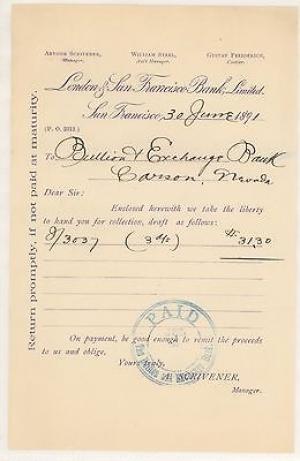 Arthur Scrivener, Manager.
William Steel, Ass't Manager.
Gustav Friederich, Cashier.
London & San Francisco Bank, Limited.
San Francisco, 30 June 1891
(P. O. 2312.)
To Bullion & Exchange Bank
Carson, Nevada
Dear Sir:
Enclosed herewith we take the liberty
to hand you for collection, draft as follows:
$31.30
On payment, be good enough to remit the proceeds
to us and oblige.
Yours truly,
A. SCRIVENER,
Manager.
PAID
Return promptly, if not paid at maturity.